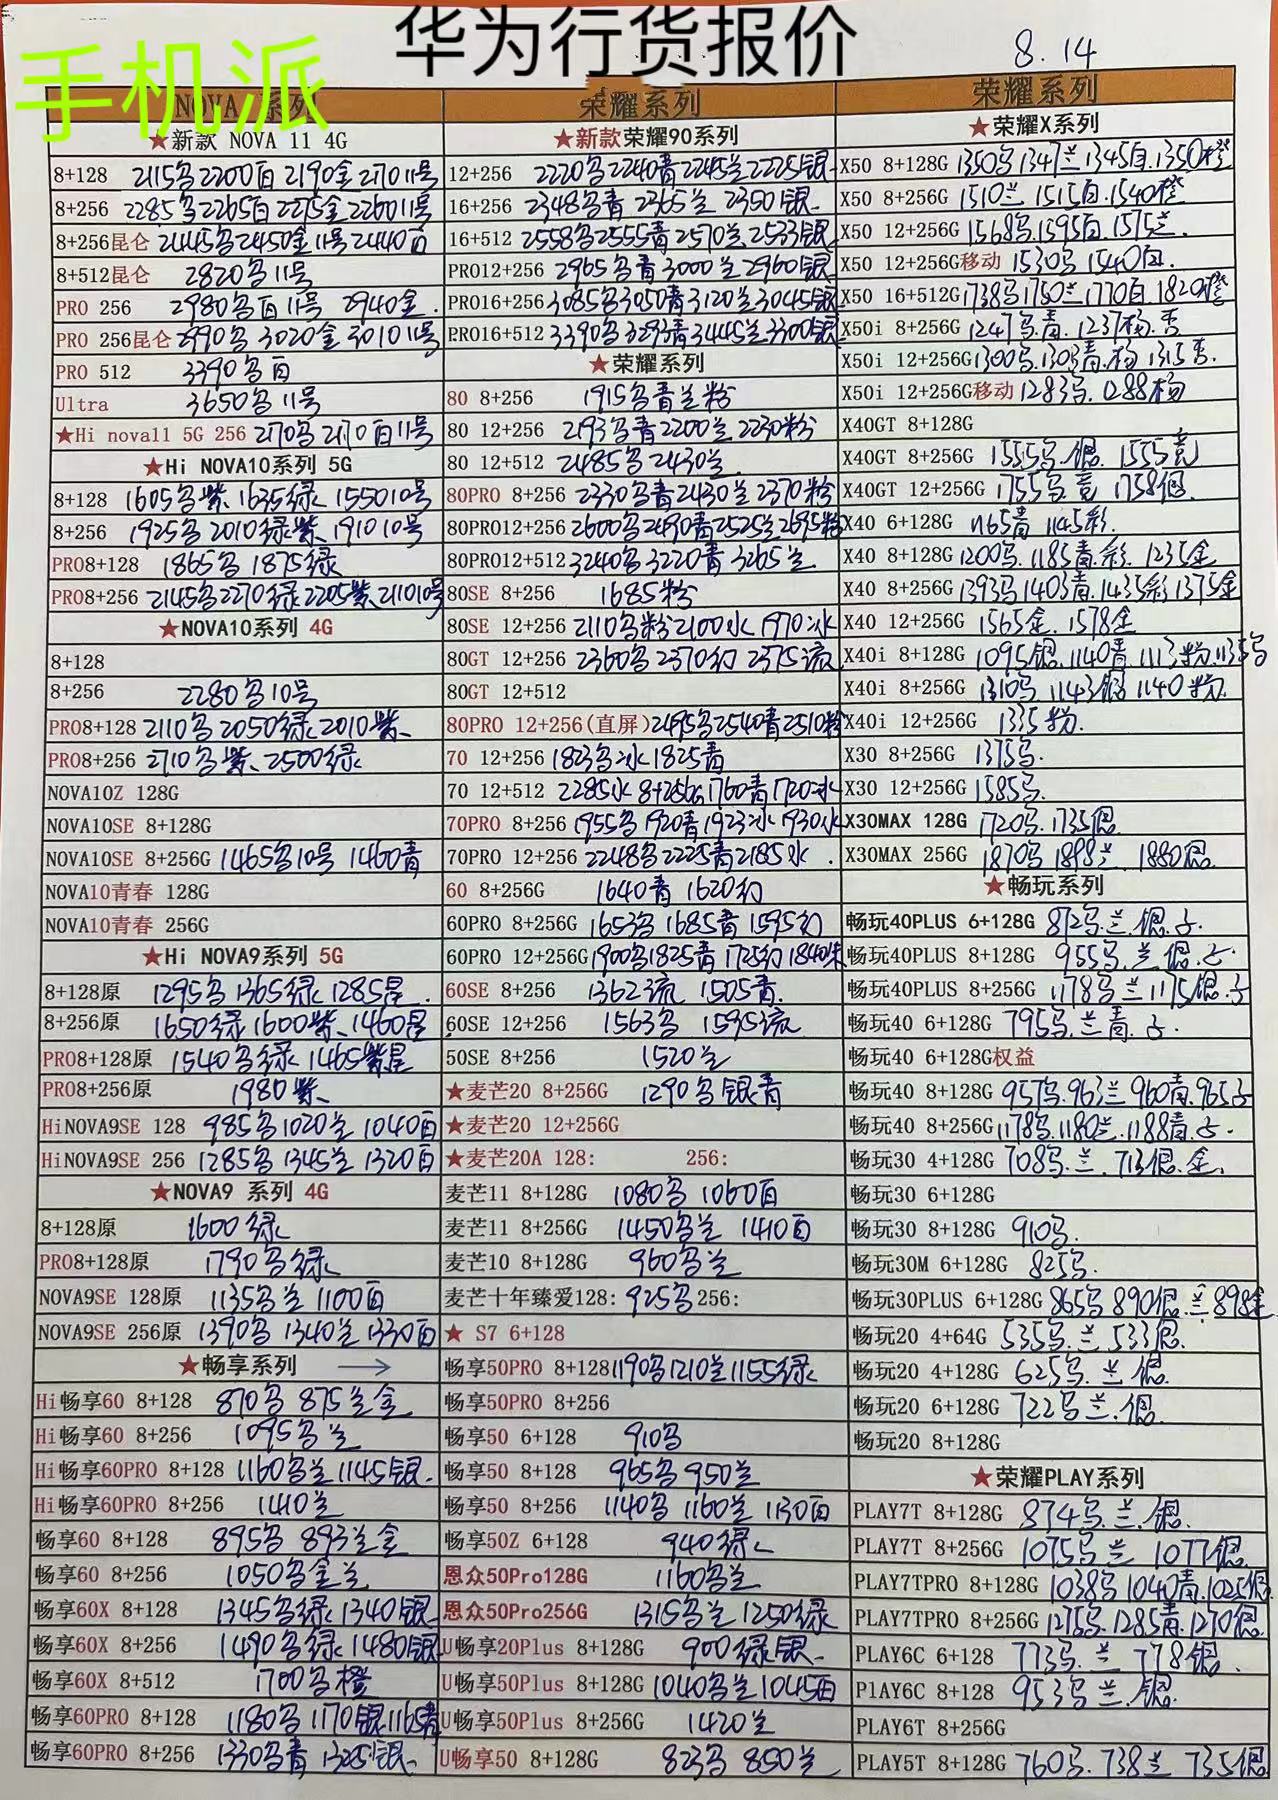 华为行货报价
手机派
8.14
NOVA 系列
★新款 NOVA 11 4G
8+128 2115 2200白 2190金 2170 11号
8+256 2285 2265白 2275金 2260 11号
8+256昆仑 2445 2450金 11号 2440白
8+512昆仑 2820 11号
PRO 256 2980 白 11号 2940金
PRO 256昆仑 2990 3020金 3010 11号
PRO 512 3390 白
Ultra 3650 11号
★Hi nova11 5G 256 2170 2170白 11号
★Hi NOVA10系列 5G
8+128 1605 紫 1635绿 1550 10号
8+256 1925 2010绿紫 1910 10号
PRO8+128 1865 1875绿
PRO8+256 2145 2270绿 2205紫 2110 10号
★NOVA10系列 4G
8+128
8+256 2280 10号
PRO8+128 2110 2050绿 2010紫
PRO8+256 2710 紫 2500绿
NOVA10Z 128G
NOVA10SE 8+128G
NOVA10SE 8+256G 1465 10号 1460青
NOVA10青春 128G
NOVA10青春 256G
★Hi NOVA9系列 5G
8+128原 1295 1365绿 1285星
8+256原 1650绿 1600紫 1460星
PRO8+128原 1540 绿 1465紫星
PRO8+256原 1980紫
HiNOVA9SE 128 985 1020兰 1040白
HiNOVA9SE 256 1285 1345兰 1320白
★NOVA9 系列 4G
8+128原 1600绿
PRO8+128原 1790 绿
NOVA9SE 128原 1135 兰 1100白
NOVA9SE 256原 1390 1340兰 1330白
★畅享系列 →
Hi畅享60 8+128 870 875兰金
Hi畅享60 8+256 1095 兰
Hi畅享60PRO 8+128 1160 兰 1145银
Hi畅享60PRO 8+256 1410兰
畅享60 8+128 895 893兰金
畅享60 8+256 1050 金兰
畅享60X 8+128 1345 绿 1340银
畅享60X 8+256 1490 绿 1480银
畅享60X 8+512 1700 橙
畅享60PRO 8+128 1180 1170银 1165青
畅享60PRO 8+256 1330 青 1325银
荣耀系列
★新款荣耀90系列
12+256 2220 2240青 2245兰 2225银
16+256 2348 青 2365兰 2350银
16+512 2558 2555青 2570兰 2533银
PRO12+256 2965 青 3000兰 2960银
PRO16+256 3085 3050青 3120兰 3045银
PRO16+512 3390 3293青 3445兰 3300银
★荣耀系列
80 8+256 1915 青兰粉
80 12+256 2193 青 2200兰 2230粉
80 12+512 2485 2430兰
80PRO 8+256 2330 青 2430兰 2370粉
80PRO12+256 2600 2690青 2525兰 2695粉
80PRO12+512 3240 3220青 3265兰
80SE 8+256 1685粉
80SE 12+256 2110 粉 2100水 1970冰
80GT 12+256 2360 2370幻 2375流
80GT 12+512
80PRO 12+256(直屏) 2495 2540青 2510粉
70 12+256 1823 冰 1825青
70 12+512 2285水 8+256G 1760青 1720冰
70PRO 8+256 1955 1920青 1923冰 1930水
70PRO 12+256 2248 2225青 2185水
60 8+256G 1640青 1620幻
60PRO 8+256G 1653 1685青 1595幻
60PRO 12+256G 1900 1825青 1725幻 1840
60SE 8+256 1362流 1505青
60SE 12+256 1563 1595流
50SE 8+256 1520兰
★麦芒20 8+256G 1290 银青
★麦芒20 12+256G
★麦芒20A 128: 256:
麦芒11 8+128G 1080 1060白
麦芒11 8+256G 1450 兰 1410白
麦芒10 8+128G 960 兰
麦芒十年臻爱128: 925 256:
★ S7 6+128
畅享50PRO 8+128 1190 1210兰 1155绿
畅享50PRO 8+256
畅享50 6+128 910
畅享50 8+128 965 950兰
畅享50 8+256 1140 1160兰 1130白
畅享50Z 6+128 940绿
恩众50Pro128G 1160 兰
恩众50Pro256G 1315 兰 1250绿
U畅享20Plus 8+128G 900绿银
U畅享50Plus 8+128G 1040 兰 1045白
U畅享50Plus 8+256G 1420兰
U畅享50 8+128G 823 850兰
荣耀系列
★荣耀X系列
X50 8+128G 1350 1347兰 1345白 1350橙
X50 8+256G 1510兰 1515白 1540橙
X50 12+256G 1568 1595白 1575兰
X50 12+256G移动 1530 1540白
X50 16+512G 1738 1750兰 1770白 1820橙
X50i 8+256G 1247 青 1237杨.杏
X50i 12+256G 1300 1303青.杨 1315杏
X50i 12+256G移动 1283 1288杨
X40GT 8+128G
X40GT 8+256G 1555 银 1555竞
X40GT 12+256G 1755 竞 1758银
X40 6+128G 1165青 1145彩
X40 8+128G 1200 1185青.彩 1235金
X40 8+256G 1393 1403青 1435彩 1375金
X40 12+256G 1565金 1578金
X40i 8+128G 1095银 1140青 1113粉 1135
X40i 8+256G 1310 1143银 1140粉
X40i 12+256G 1335粉
X30 8+256G 1375
X30 12+256G 1585
X30MAX 128G 1720 1735银
X30MAX 256G 1870 1898兰 1880银
★畅玩系列
畅玩40PLUS 6+128G 872 兰.银
畅玩40PLUS 8+128G 955 兰.银
畅玩40PLUS 8+256G 1178 兰 1175银
畅玩40 6+128G 795 兰 青
畅玩40 6+128G权益
畅玩40 8+128G 957 963兰 960青 965
畅玩40 8+256G 1178 1180兰 1188青
畅玩30 4+128G 708 兰 713银.金
畅玩30 6+128G
畅玩30 8+128G 910
畅玩30M 6+128G 825
畅玩30PLUS 6+128G 865 890银 兰 898金
畅玩20 4+64G 535 兰 533银
畅玩20 4+128G 625 兰 银
畅玩20 6+128G 722 兰 银
畅玩20 8+128G
★荣耀PLAY系列
PLAY7T 8+128G 874 兰.银
PLAY7T 8+256G 1075 兰 1077银
PLAY7TPRO 8+128G 1038 1040青 1025银
PLAY7TPRO 8+256G 1275 1285青 1270银
PLAY6C 6+128 773 兰 778银
PlAY6C 8+128 953 兰.银
PLAY6T 8+256G
PLAY5T 8+128G 760 738兰 735银